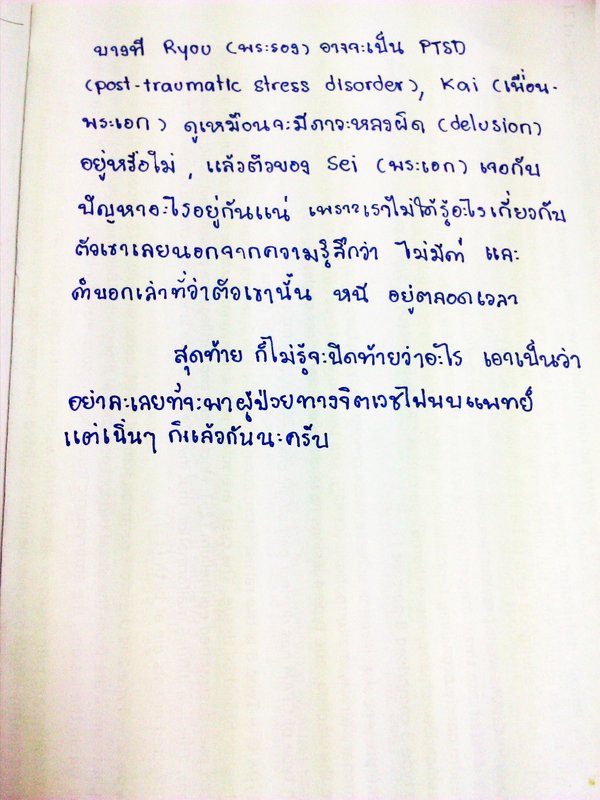 บางที Ryou (พระรอง) อาจจะเป็น PTSD
(post-traumatic stress disorder), Kai (เพื่อน-
พระเอก) ดูเหมือนจะมีภาวะหลงผิด (delusion)
อยู่หรือไม่, แล้วตัวของ Sei (พระเอก) เจอกับ
ปัญหาอะไรอยู่กันแน่ เพราะเราไม่ได้รู้อะไรเกี่ยวกับ
ตัวเขาเลยนอกจากความรู้สึกว่า ไม่มีค่า และ
คำบอกเล่าที่ว่าตัวเขานั้น หนี อยู่ตลอดเวลา
สุดท้าย ก็ไม่รู้จะปิดท้ายว่าอะไร เอาเป็นว่า
อย่าละเลยที่จะพาผู้ป่วยทางจิตเวชไปพบแพทย์
แต่เนิ่นๆ ก็แล้วกันนะครับ